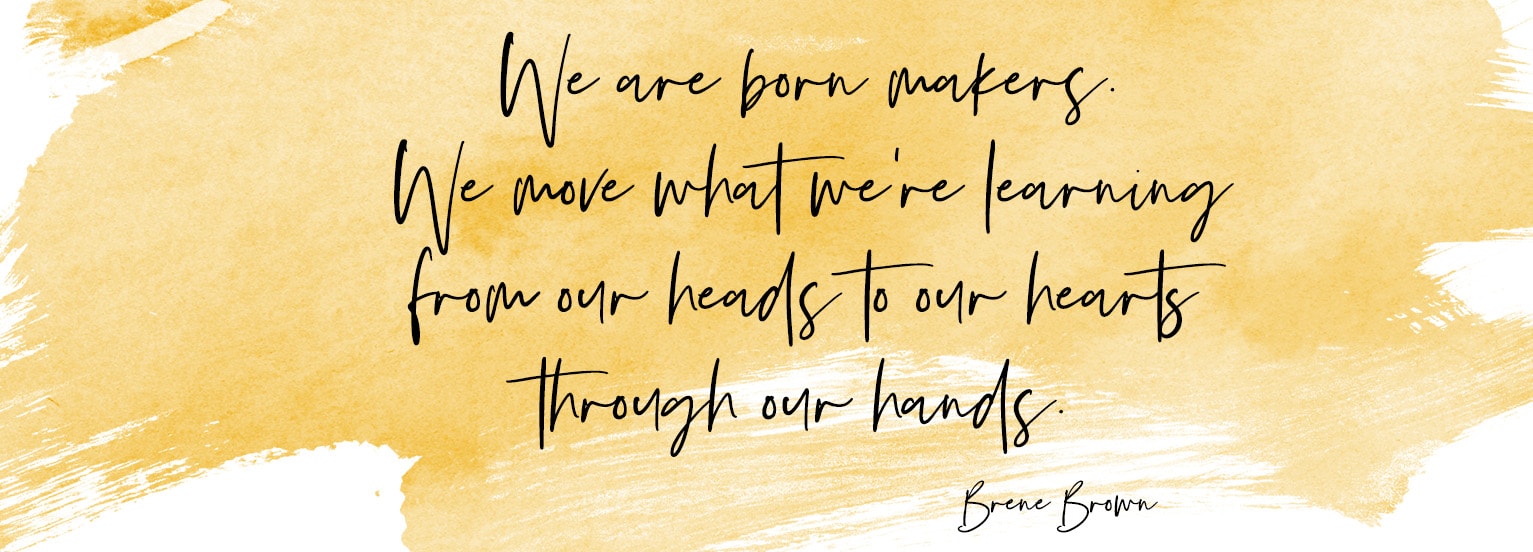 We are born makers.
We move what we're learning
from our heads to our hearts
through our hands.
Brene Brown